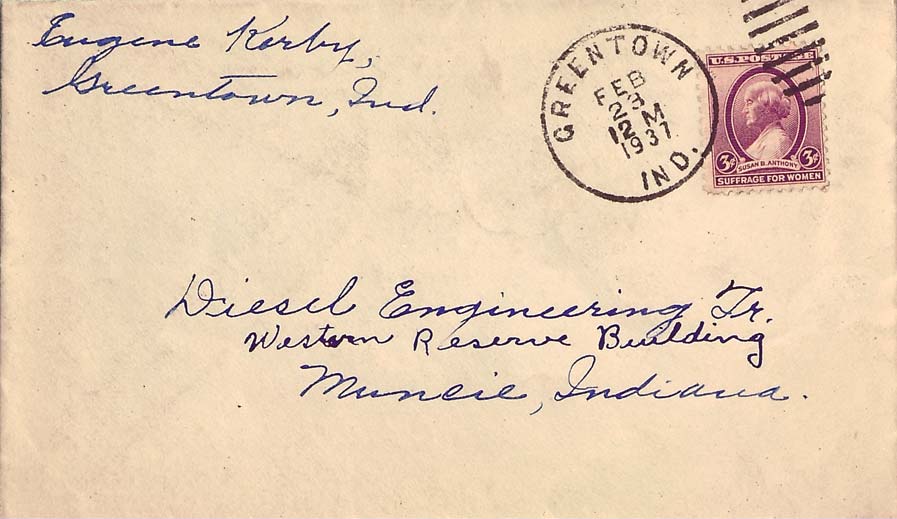 Eugene Kerby,
Greentown, Ind.
GREENTOWN
FEB
23
12 M
1937
IND.
U.S. POSTAGE
3¢ SUSAN B. ANTHONY 3¢
SUFFRAGE FOR WOMEN
Diesel Engineering Tr.
Western Reserve Building
Muncie, Indiana.